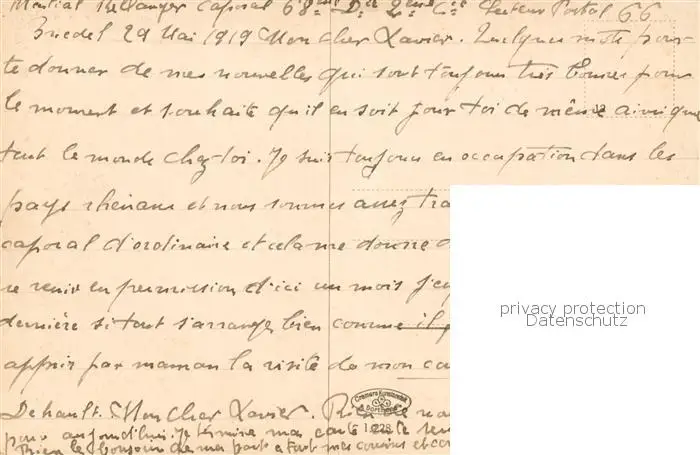 Martial Bellanger Caporal 68ème D.ie 2ème Cie Secteur Postal 66
Briedel 29 Mai 1919 Mon cher Xavier. Quelques mots pour
te donner de mes nouvelles qui sont toujours très bonnes pour
le moment et souhaite qu'il en soit pour toi de même ainsi que
tout le monde chez toi. Je suis toujours en occupation dans les
pays rhénans et nous sommes assez
caporal d'ordinaire et cela me donne
venir en permission d'ici un mois
dernière si tout s'arrange bien comme il
appris par maman la visite de mon
Dehault. Mon cher Xavier. Rien de
pour aujourd'hui. Je termine ma carte en te
bien le bonjour de ma part à tout mes cousins et
privacy protection
Datenschutz
1.228